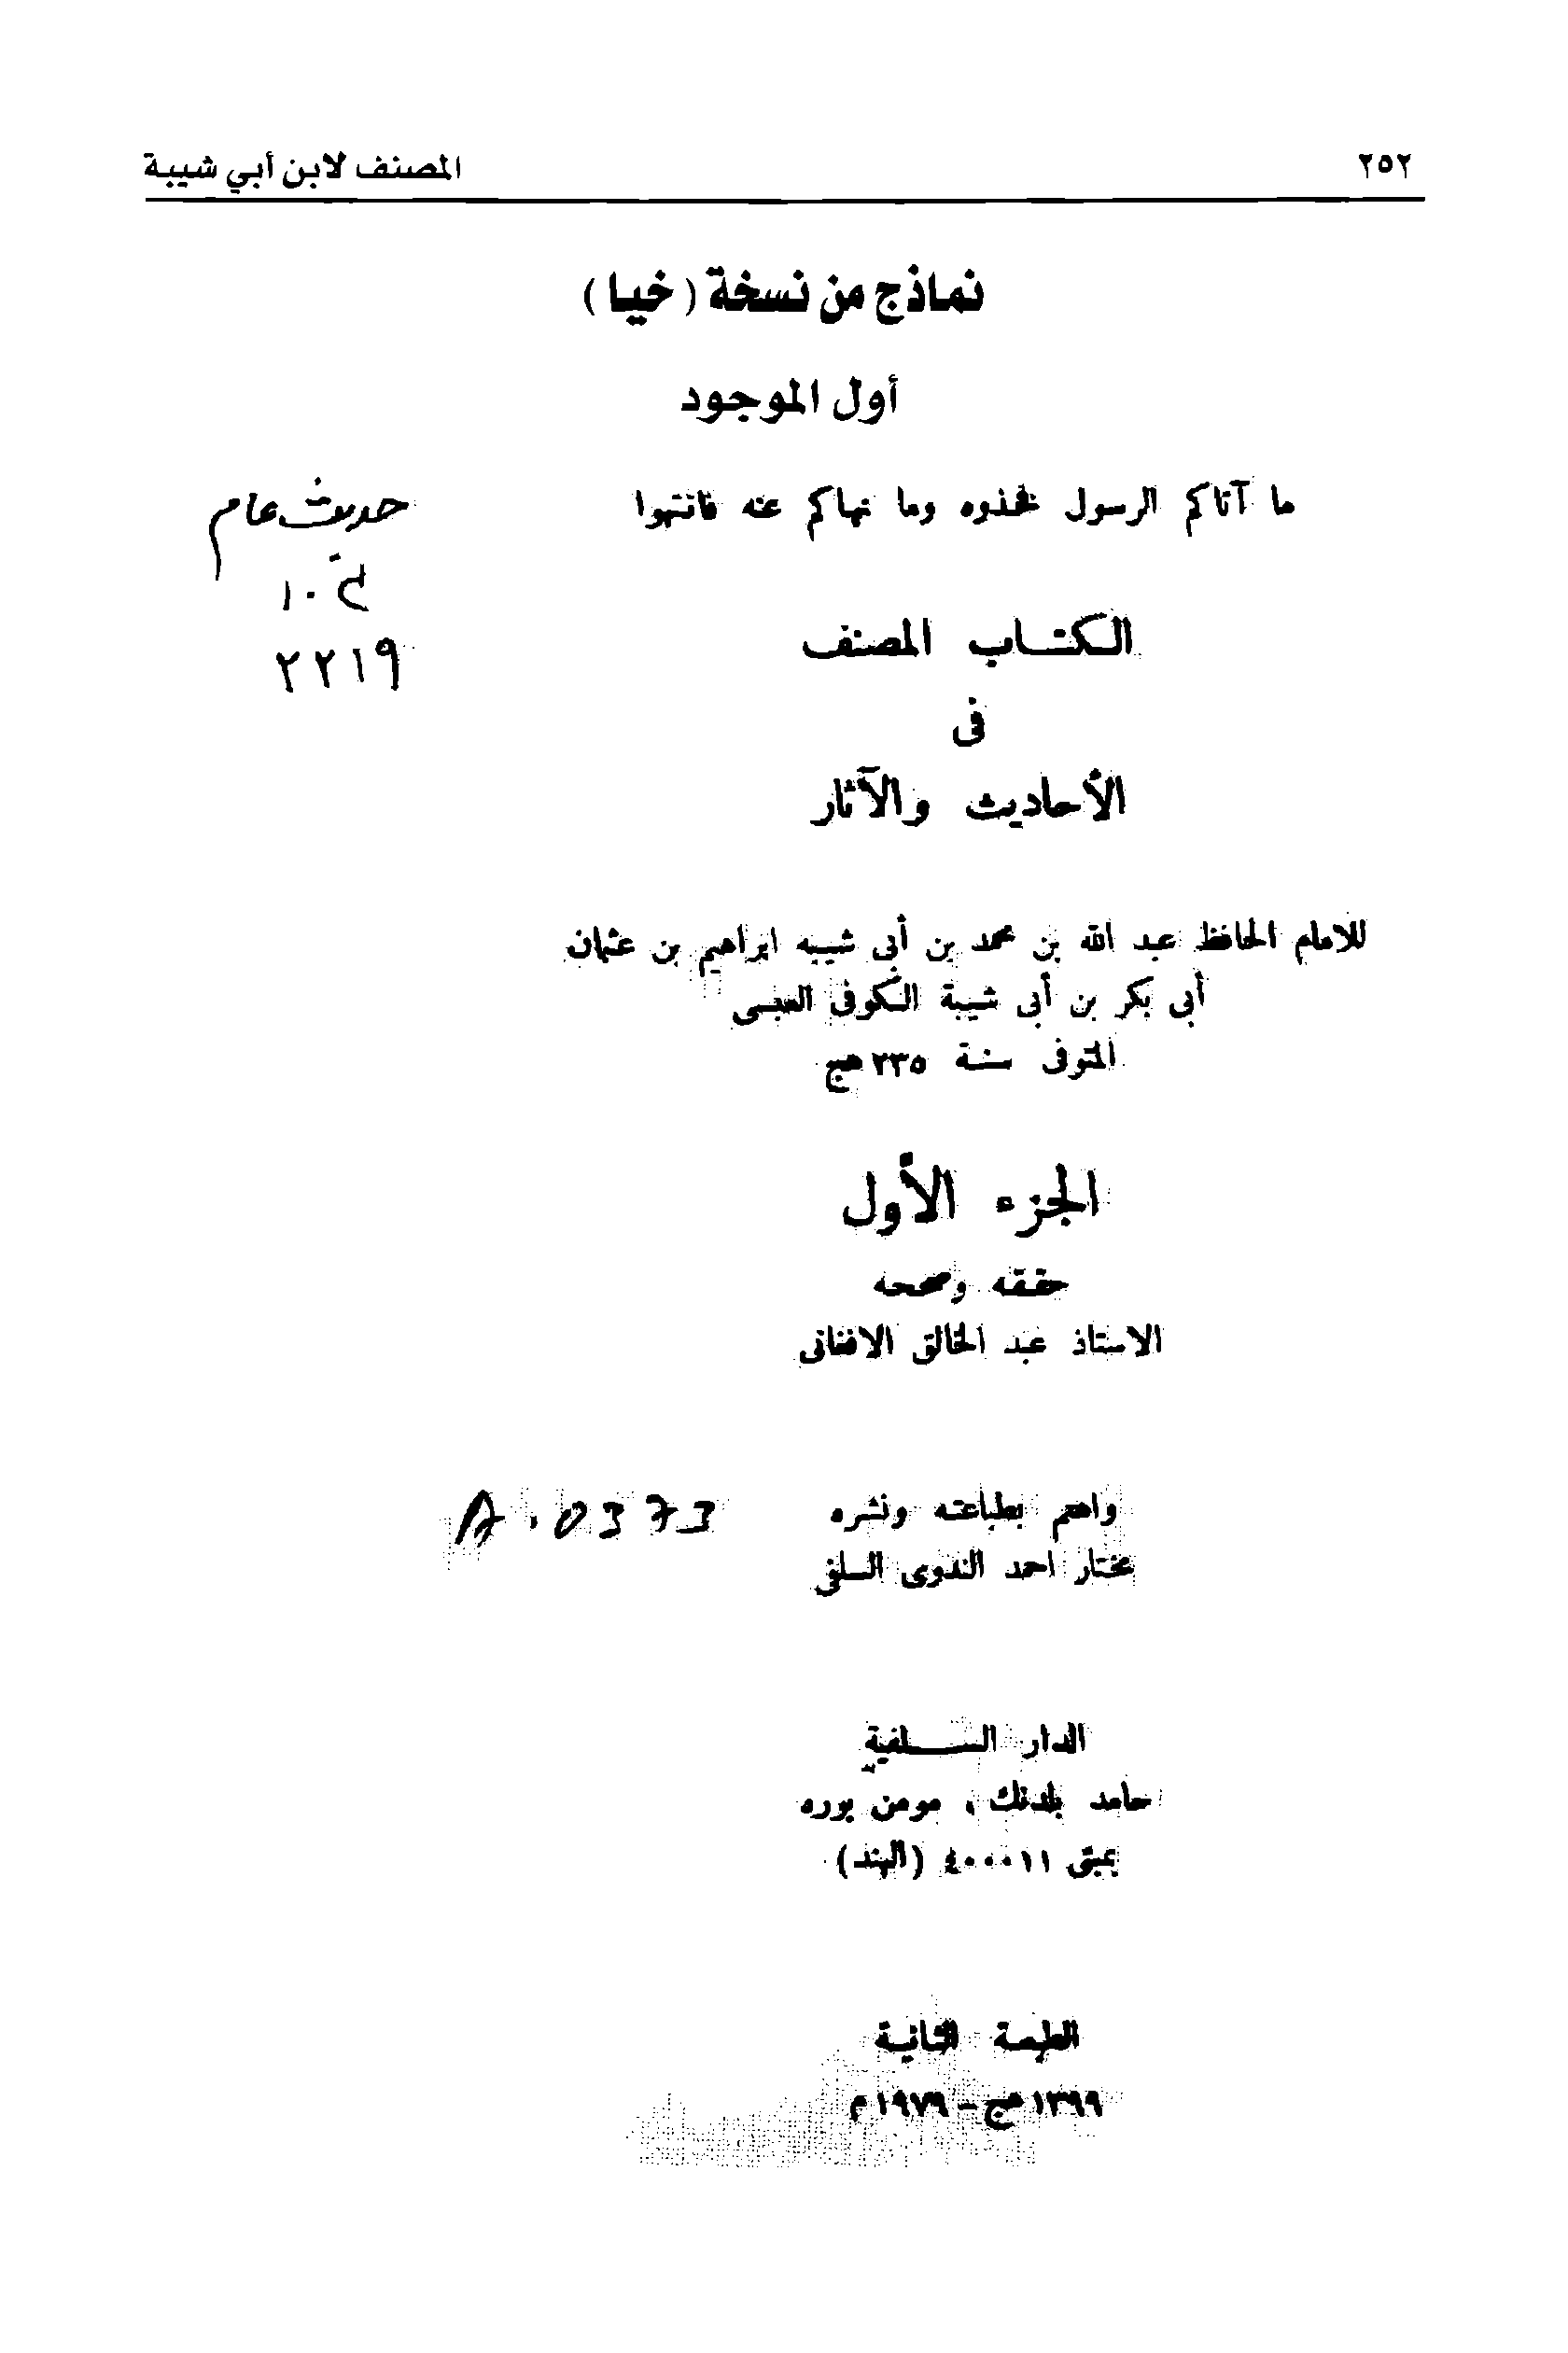 ٢٥٢
المصنف لابن أبي شيبة
نماذج من نسخة (خيا)
أول الموجود
ما آتاكم الرسول فخذوه وما نهاكم عنه فانتهوا
حديث عام
١٠
٢٢١٩
الكتاب المصنف
فى
الأحاديث والآثار
للامام الحافظ عبد الله بن محمد بن أبى شيبه ابراهيم بن عثمان
أبى بكر بن أبى شيبة الكوفى العبسى
المتوفى سنة ٢٣٥ هج
الجزء الأول
حققه وصححه
الاستاذ عبد الخالق الافغانى
واهتم بطباعته ونشره
A.0373
مختار احمد الندوى السلفى
الدار السلفية
حامد بلدنك ، مومن بوره
بمبئى ٤٠٠٠١١ (الهند)
الطبعة الثانية
١٣٩٩ هج - ١٩٧٩ م